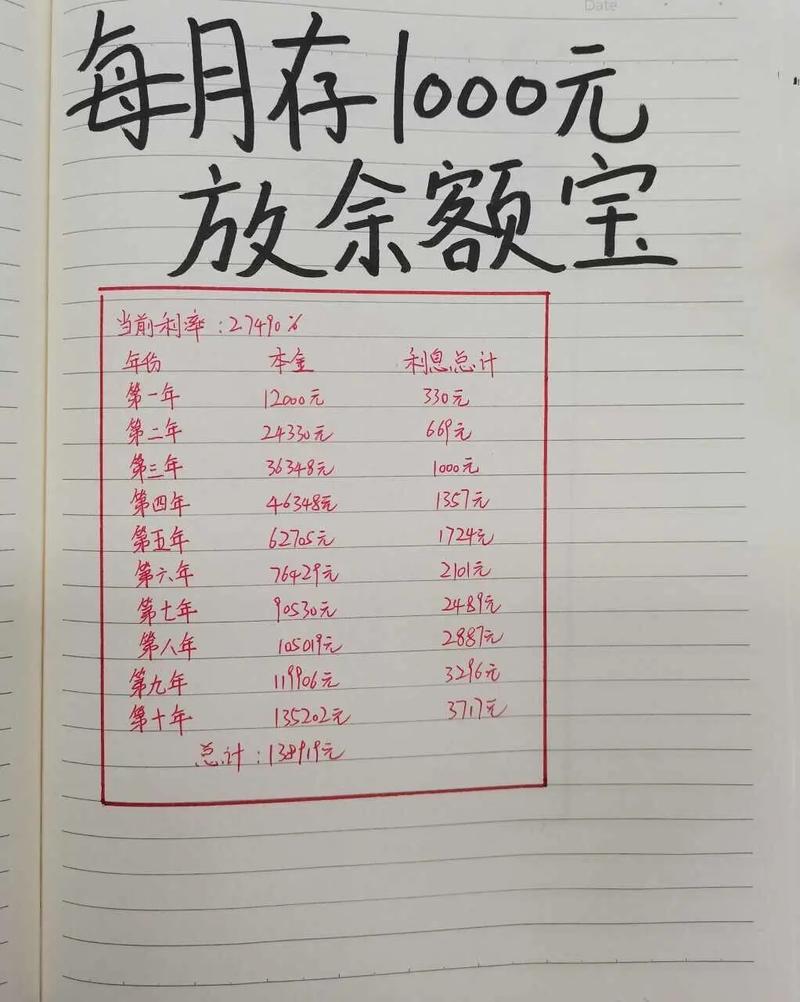 Date
每月存1000元
放余额宝
当前利率：2.7490%
年份 本金 利息总计
第一年 12000元 330元
第二年 24330元 669元
第三年 36348元 1000元
第四年 46348元 1357元
第五年 62705元 1724元
第六年 76429元 2101元
第七年 90530元 2489元
第八年 105019元 2887元
第九年 119906元 3296元
第十年 135202元 3717元
总计：138919元